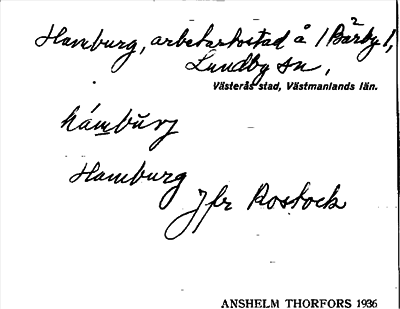 Hamburg, arbetarbostad å 1 Bärby 2/1,
Lundby sn,
Västerås stad, Västmanlands län.
hámbŭrj
Hamburg
Jfr Rostock
ANSHELM THORFORS 1936